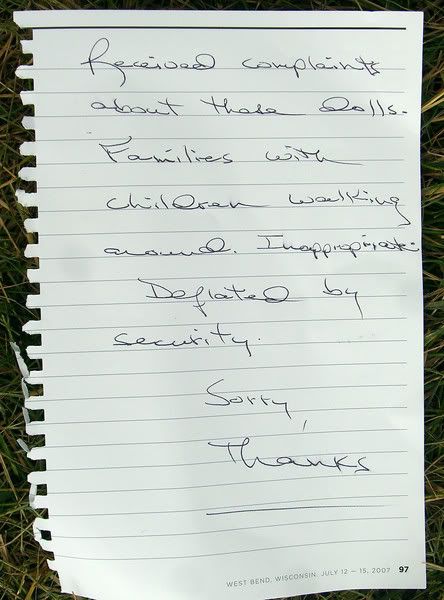 Received complaints
about these dolls.
Families with
children walking
around. Inappropriate.
Deflated by
security.
Sorry,
Thanks
WEST BEND, WISCONSIN. JULY 12 — 15, 2007 97